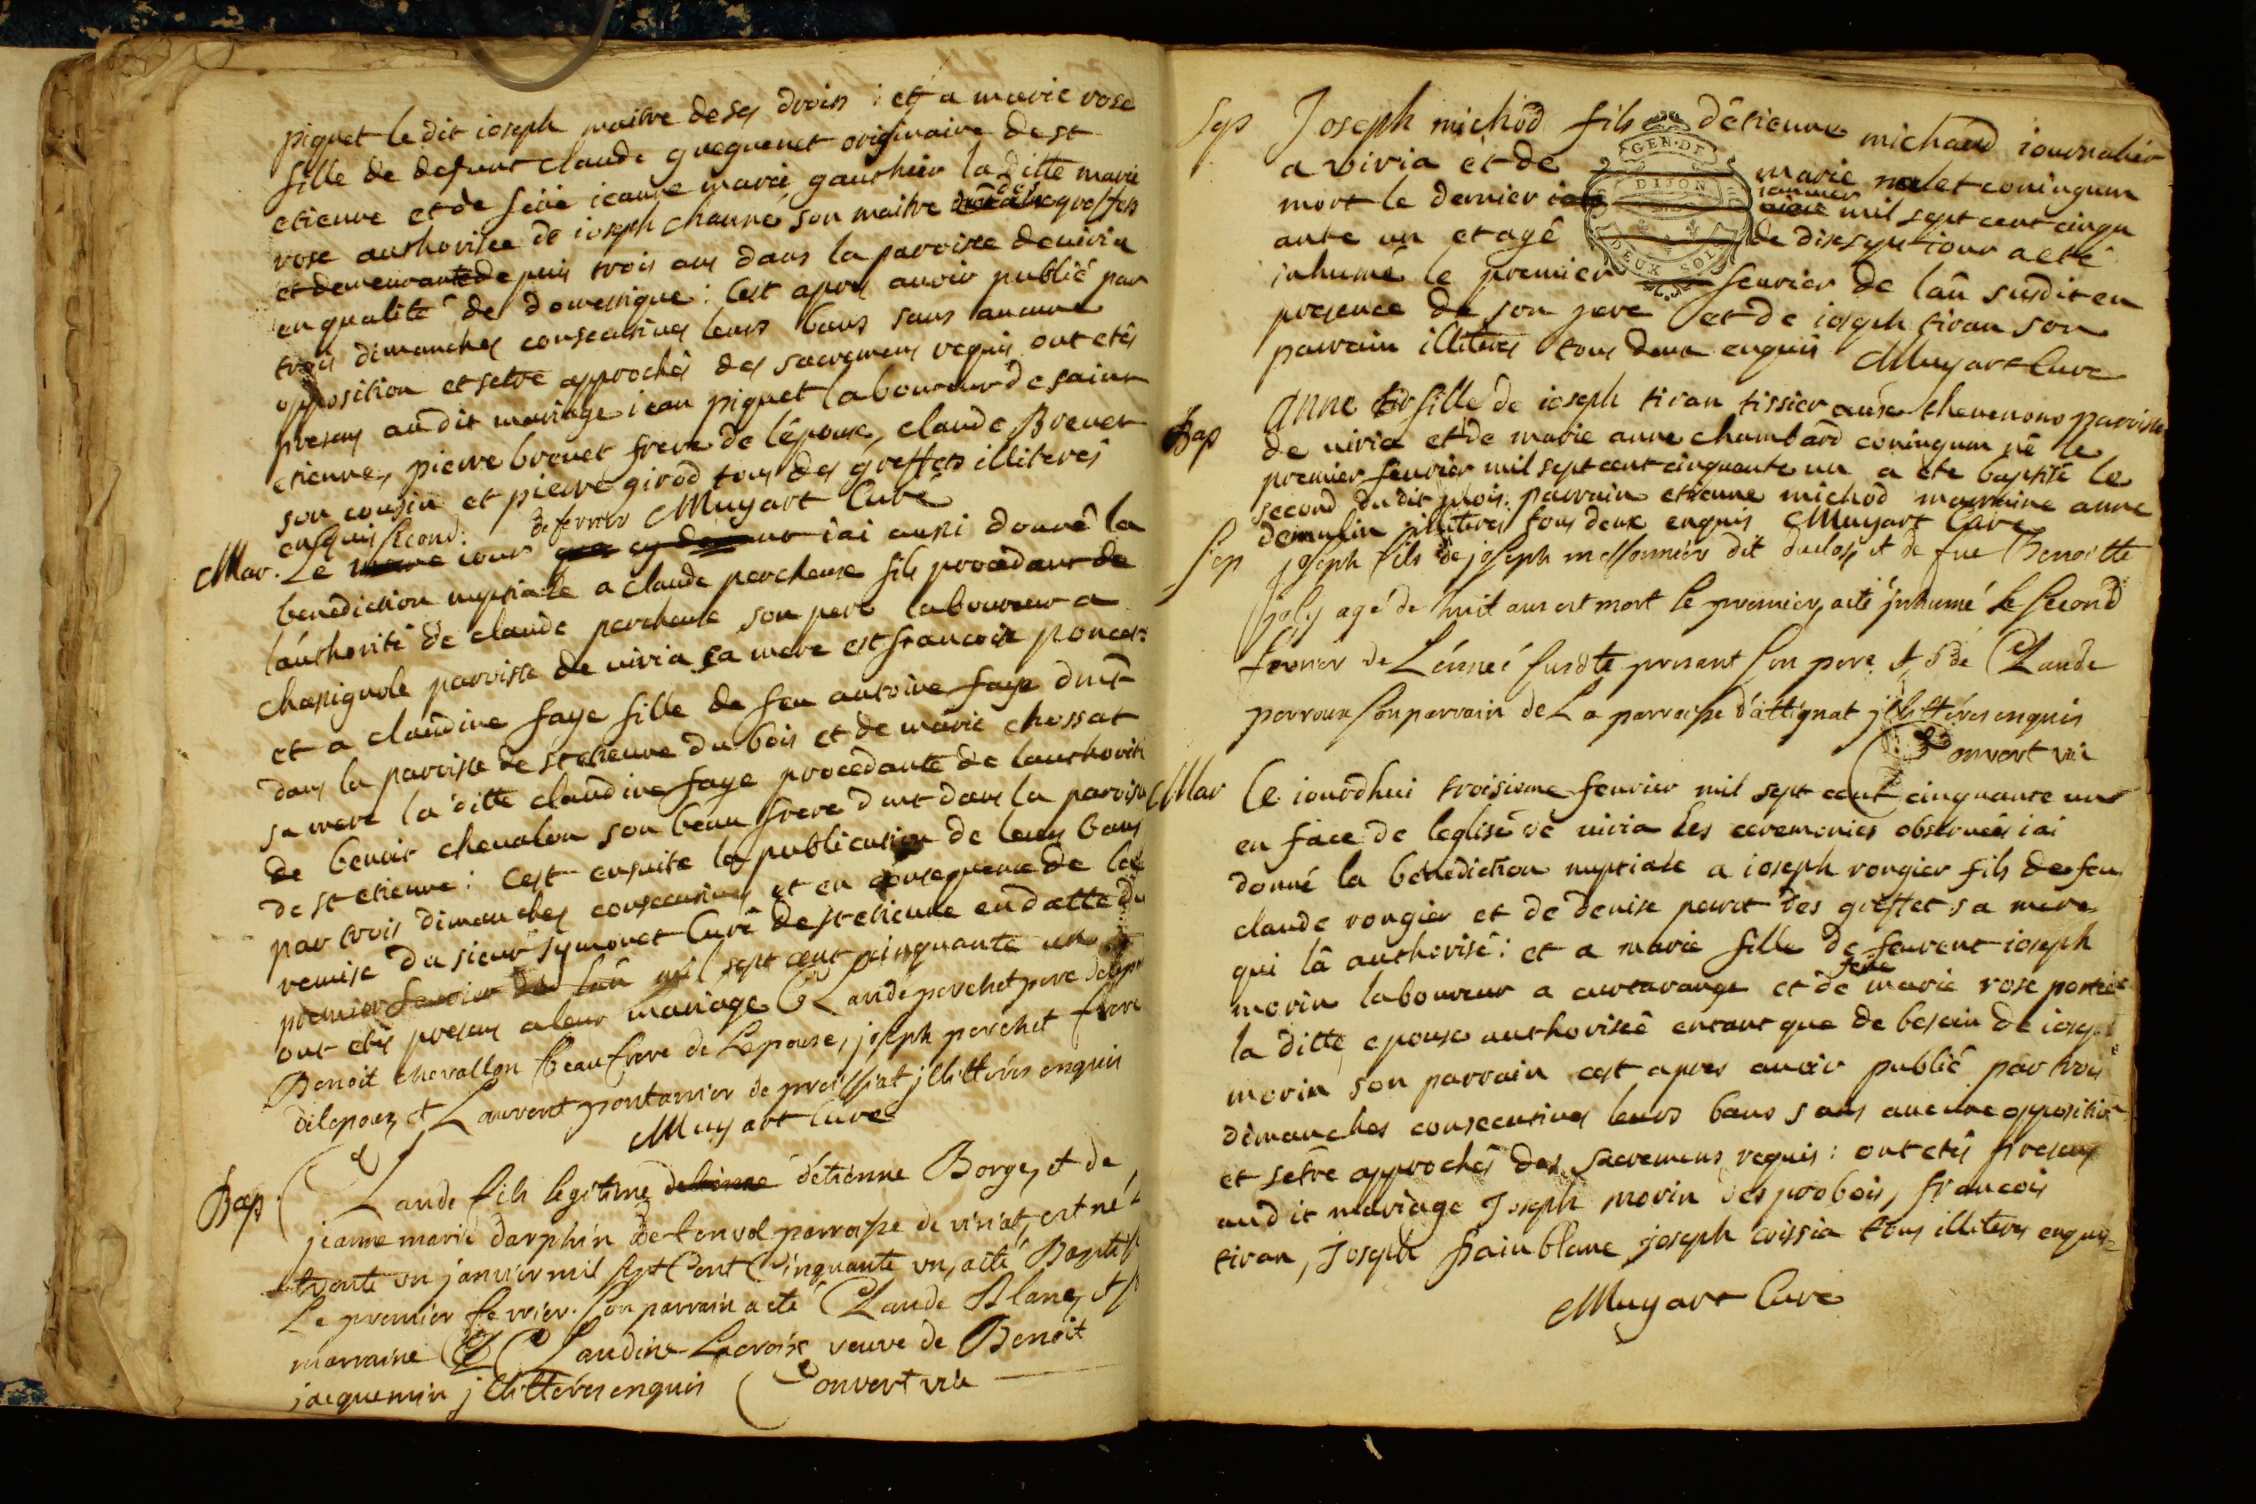 piquet le dit ioseph maitre de ses droits : et a marie rose
fille de defunt claude greguenet originaire de st
etienne et de feüe ieanne marie gauthier la ditte marie
rose authorisée de ioseph chauné son maitre des greffets
et demeurante depuis trois ans dans la paroisse de viria
en qualité de domestique : cest apres auoir publié par
trois dimanches consecutives leurs bans sans aucune
opposition et setre approchés des sacremens requis ont etés
presens audit mariage iean piquet laboureur de saint
etienne, pierre brouet frere de lépouse, claude Brevet
son cousin et pierre girod tous des greffets illiterés
enquis Muyart Curé
Mar. Le second iour de fevrier iai aussi donné la
benediction nuptiale a claude percheuse fils procedant de
láuthorité de claude percheuse son pere laboureur a
chasignole paroisse de viria sa mere est francoise poncet :
et a claudine faye fille de feu antoine faye
dans la paroisse de st etienne du bois et de marie chossat
sa mere la ditte claudine faye procedante de lauthorité
de benoit chevalon son beau frere dans la paroisse
de st etienne : cest ensuite la publication de leurs bans
par trois dimanches consecutives et en consequence de la
remise du sieur symonet Curé de st etienne en datte du
premier fevrier lan mil sept cent cinquante un
ont etés presens a leur mariage Claude perchet pere
Benoit chevallon Beau frere de Lepouse, joseph perchet frere
de lepoux, et Laurent pontarrier de illitterés enquis
Muyart Curé
Bap. Claude fils legitime détienne Borges et de
jeanne marie darphin de tenvol parroisse de viriat, est né
trente un janvier mil sept Cent Cinquante un, a eté Baptisé
Le premier fevrier. Son parrain a eté Claude Blanc, et
marraine Claudine Lacroix veuve de Benoit
jacquemin jllitterés enquis Convert vic
Sep Joseph michod fils détienne michaud iournalier
a viria et de marie nalet coniugum
mort le dernier ianvier mil sept cent cinqu
ante un et agé de disesept iour a eté
inhumé le premier feurier de lan susdit en
presence de son pere et de ioseph tiran son
parrain illiterés tous deux enquis Muyart Cure
Bap Anne fille de ioseph tiran tissier aux thevenons paroisse
de viria et de marie anne chambard coniugum né le
premier feurier mil sept cent cinquante un a eté baptisé le
second dudit mois. parrain etienne michod marraine anne
demulin illiterés tous deux enquis Muyart Cure
Sep joseph fils de joseph messonnier dit duclos et de fue Benoitte
joly agé de huit ans est mort le premier, a eté jnhumé le second
fevrier de Lánneé susdte present son pere et de Claude
perroux son parrain de La parroisse d'attignat jllitterés enquis
Convert vic
Mar Ce iourdhui troisieme feurier mil sept cent cinquante un
en face de leglise de viria les ceremonies observeés iai
donné la benediction nuptiale a ioseph rongier fils de feu
claude rongier et de denise perret des greffets sa mere
qui lâ authorisé : et a marie fille de feurent ioseph
morin laboureur a curtarange et de feüe marie rose portier
la ditte epouse authoriseé entant que de besoin de ioseph
morin son parrain cest apres auoir publié par trois
dimanches consecutives leurs bans sans aucune opposition
et setre approchés des sacremens requis : ont etés presens
audit mariage Joseph morin des probois, francois
tiran, Joseph painblanc joseph croissia tous illiterés enquis
Muyart Cure
GEN. DE
DIJON
DEUX SOLS